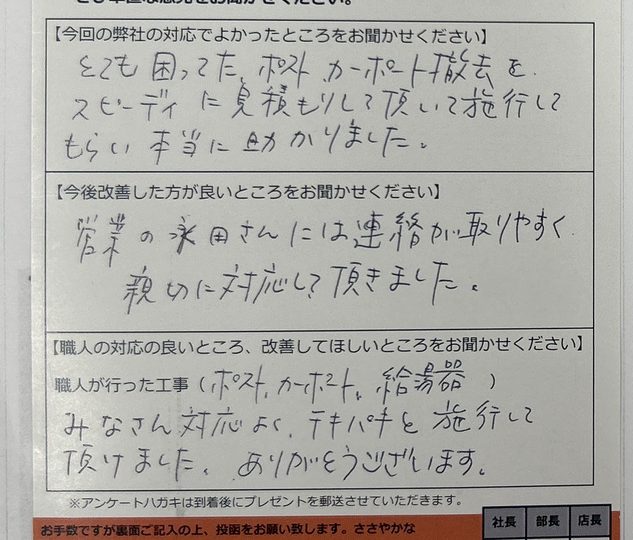 【今回の弊社の対応でよかったところをお聞かせください】
とても困ってた、ポスト、カーポート撤去を
スピーディに見積もりして頂いて施行して
もらい本当に助かりました。
【今後改善した方が良いところをお聞かせください】
営業の永田さんには連絡が取りやすく
親切に対応して頂きました。
【職人の対応の良いところ、改善してほしいところをお聞かせください】
職人が行った工事（ポスト、カーポート、給湯器）
みなさん対応よく、テキパキと施行して
頂けました。ありがとうございます。
※アンケートハガキは到着後にプレゼントを郵送させていただきます。
お手数ですが裏面ご記入の上、投函をお願い致します。ささやかな
社長 部長 店長